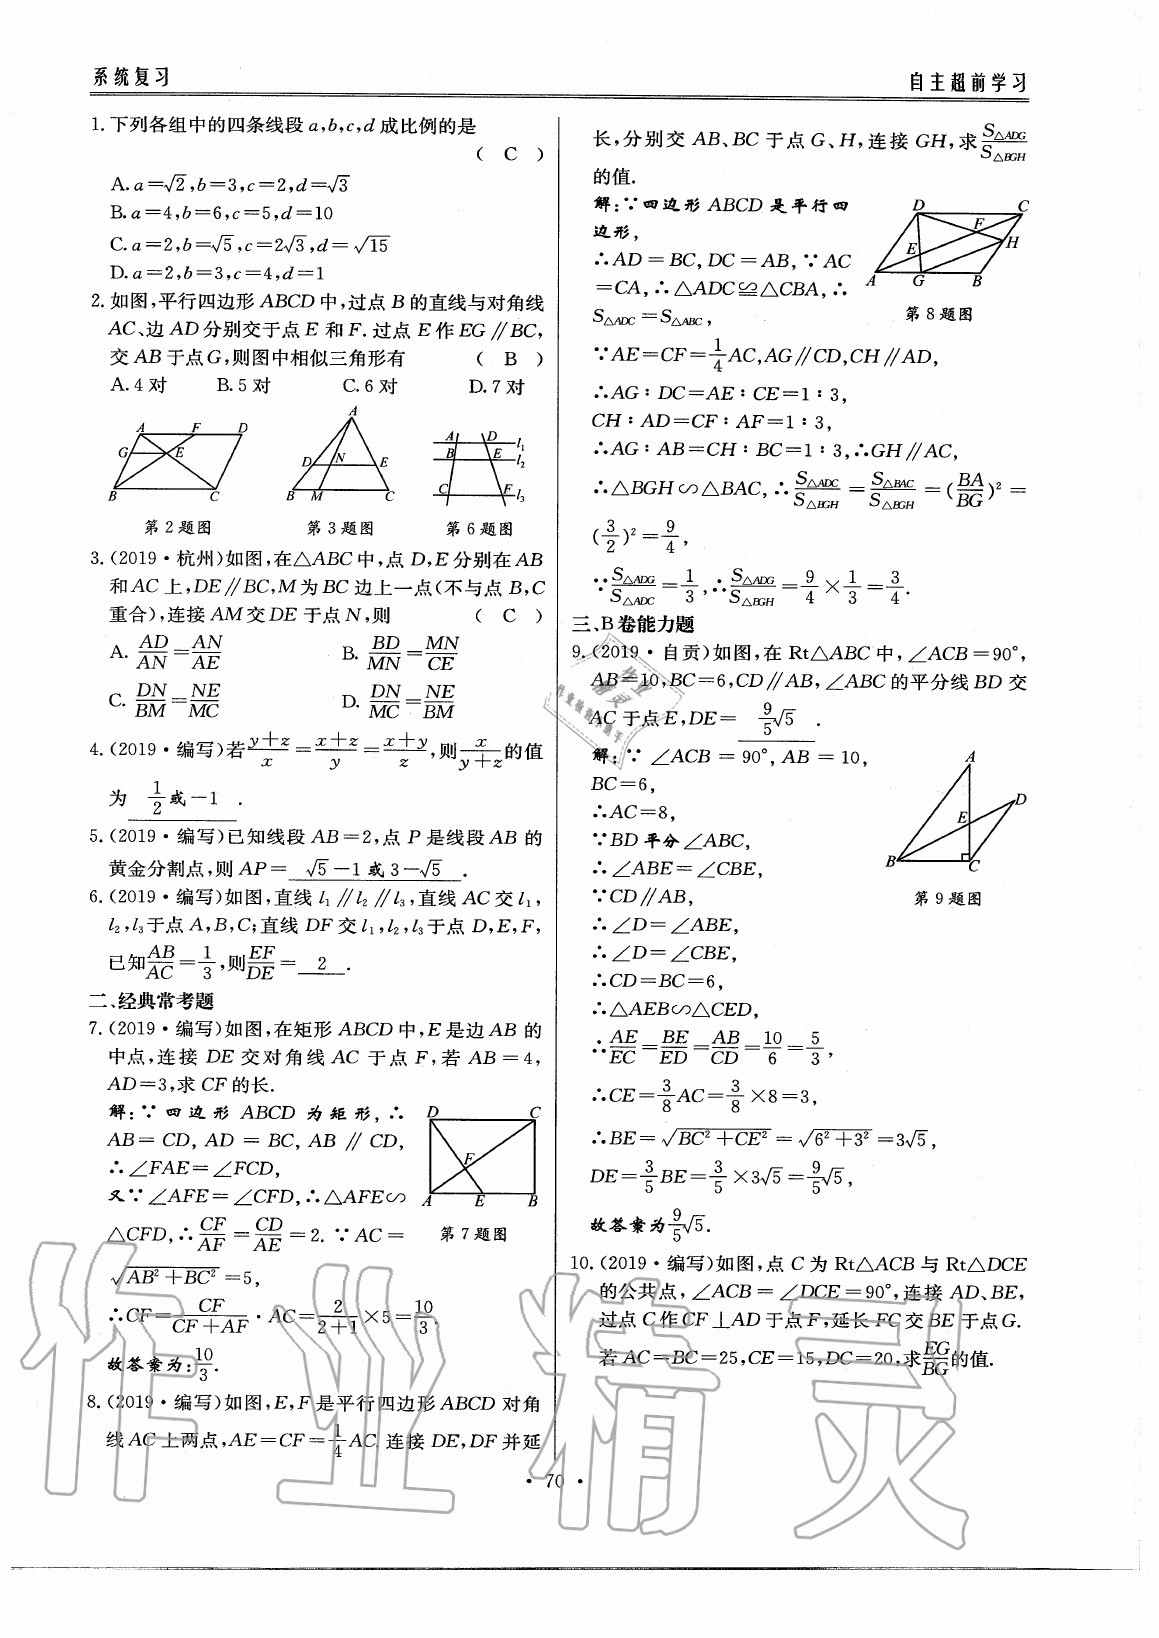 系统复习
自主超前学习
1.下列各组中的四条线段a,b,c,d成比例的是
( C )
A.a=√2,b=3,c=2,d=√3
B.a=4,b=6,c=5,d=10
C.a=2,b=√5,c=2√3,d=√15
D.a=2,b=3,c=4,d=1
2.如图,平行四边形ABCD中,过点B的直线与对角线
AC、边AD分别交于点E和F.过点E作EG∥BC,
交AB于点G,则图中相似三角形有 ( B )
A.4对 B.5对 C.6对 D.7对
A F D
G E
B C
第2题图
A
D N E
B M C
第3题图
A D l₁
B E l₂
C F l₃
第6题图
3.(2019·杭州)如图,在△ABC中,点D,E分别在AB
和AC上,DE∥BC,M为BC边上一点(不与点B,C
重合),连接AM交DE于点N,则 ( C )
A. AD/AN=AN/AE B. BD/MN=MN/CE
C. DN/BM=NE/MC D. DN/MC=NE/BM
4.(2019·编写)若(y+z)/x=(x+z)/y=(x+y)/z,则x/(y+z)的值
为 1/2或-1 .
5.(2019·编写)已知线段AB=2,点P是线段AB的
黄金分割点,则AP= √5-1或3-√5 .
6.(2019·编写)如图,直线l₁∥l₂∥l₃,直线AC交l₁,
l₂,l₃于点A,B,C;直线DF交l₁,l₂,l₃于点D,E,F,
已知AB/AC=1/3,则EF/DE= 2 .
二、经典常考题
7.(2019·编写)如图,在矩形ABCD中,E是边AB的
中点,连接DE交对角线AC于点F,若AB=4,
AD=3,求CF的长.
解:∵四边形ABCD为矩形,∴
AB=CD,AD=BC,AB∥CD,
∴∠FAE=∠FCD,
又∵∠AFE=∠CFD,∴△AFE∽
△CFD,∴CF/AF=CD/AE=2.∵AC=
√(AB²+BC²)=5,
∴CF=CF/(CF+AF)·AC=2/(2+1)×5=10/3.
故答案为:10/3.
D C
F
A E B
第7题图
8.(2019·编写)如图,E,F是平行四边形ABCD对角
线AC上两点,AE=CF=1/4AC,连接DE,DF并延
长,分别交AB、BC于点G、H,连接GH,求S△ADG/S△BGH
的值.
解:∵四边形ABCD是平行四
边形,
∴AD=BC,DC=AB,∵AC
=CA,∴△ADC≌△CBA,∴
S△ADC=S△ABC,
D C
F
H
E
A G B
第8题图
∵AE=CF=1/4AC,AG∥CD,CH∥AD,
∴AG∶DC=AE∶CE=1∶3,
CH∶AD=CF∶AF=1∶3,
∴AG∶AB=CH∶BC=1∶3,∴GH∥AC,
∴△BGH∽△BAC,∴S△ADC/S△BGH=S△BAC/S△BGH=(BA/BG)²=
(3/2)²=9/4,
∵S△ADG/S△ADC=1/3,∴S△ADG/S△BGH=9/4×1/3=3/4.
三、B卷能力题
9.(2019·自贡)如图,在Rt△ABC中,∠ACB=90°,
AB=10,BC=6,CD∥AB,∠ABC的平分线BD交
AC于点E,DE= 9/5√5 .
解:∵∠ACB=90°,AB=10,
BC=6,
∴AC=8,
∵BD平分∠ABC,
∴∠ABE=∠CBE,
∵CD∥AB,
∴∠D=∠ABE,
∴∠D=∠CBE,
∴CD=BC=6,
∴△AEB∽△CED,
∴AE/EC=BE/ED=AB/CD=10/6=5/3,
∴CE=3/8AC=3/8×8=3,
∴BE=√(BC²+CE²)=√(6²+3²)=3√5,
DE=3/5BE=3/5×3√5=9/5√5,
故答案为9/5√5.
A
D
E
B C
第9题图
10.(2019·编写)如图,点C为Rt△ACB与Rt△DCE
的公共点,∠ACB=∠DCE=90°,连接AD、BE,
过点C作CF⊥AD于点F,延长FC交BE于点G.
若AC=BC=25,CE=15,DC=20,求EG/BG的值.
·70·
作业精灵